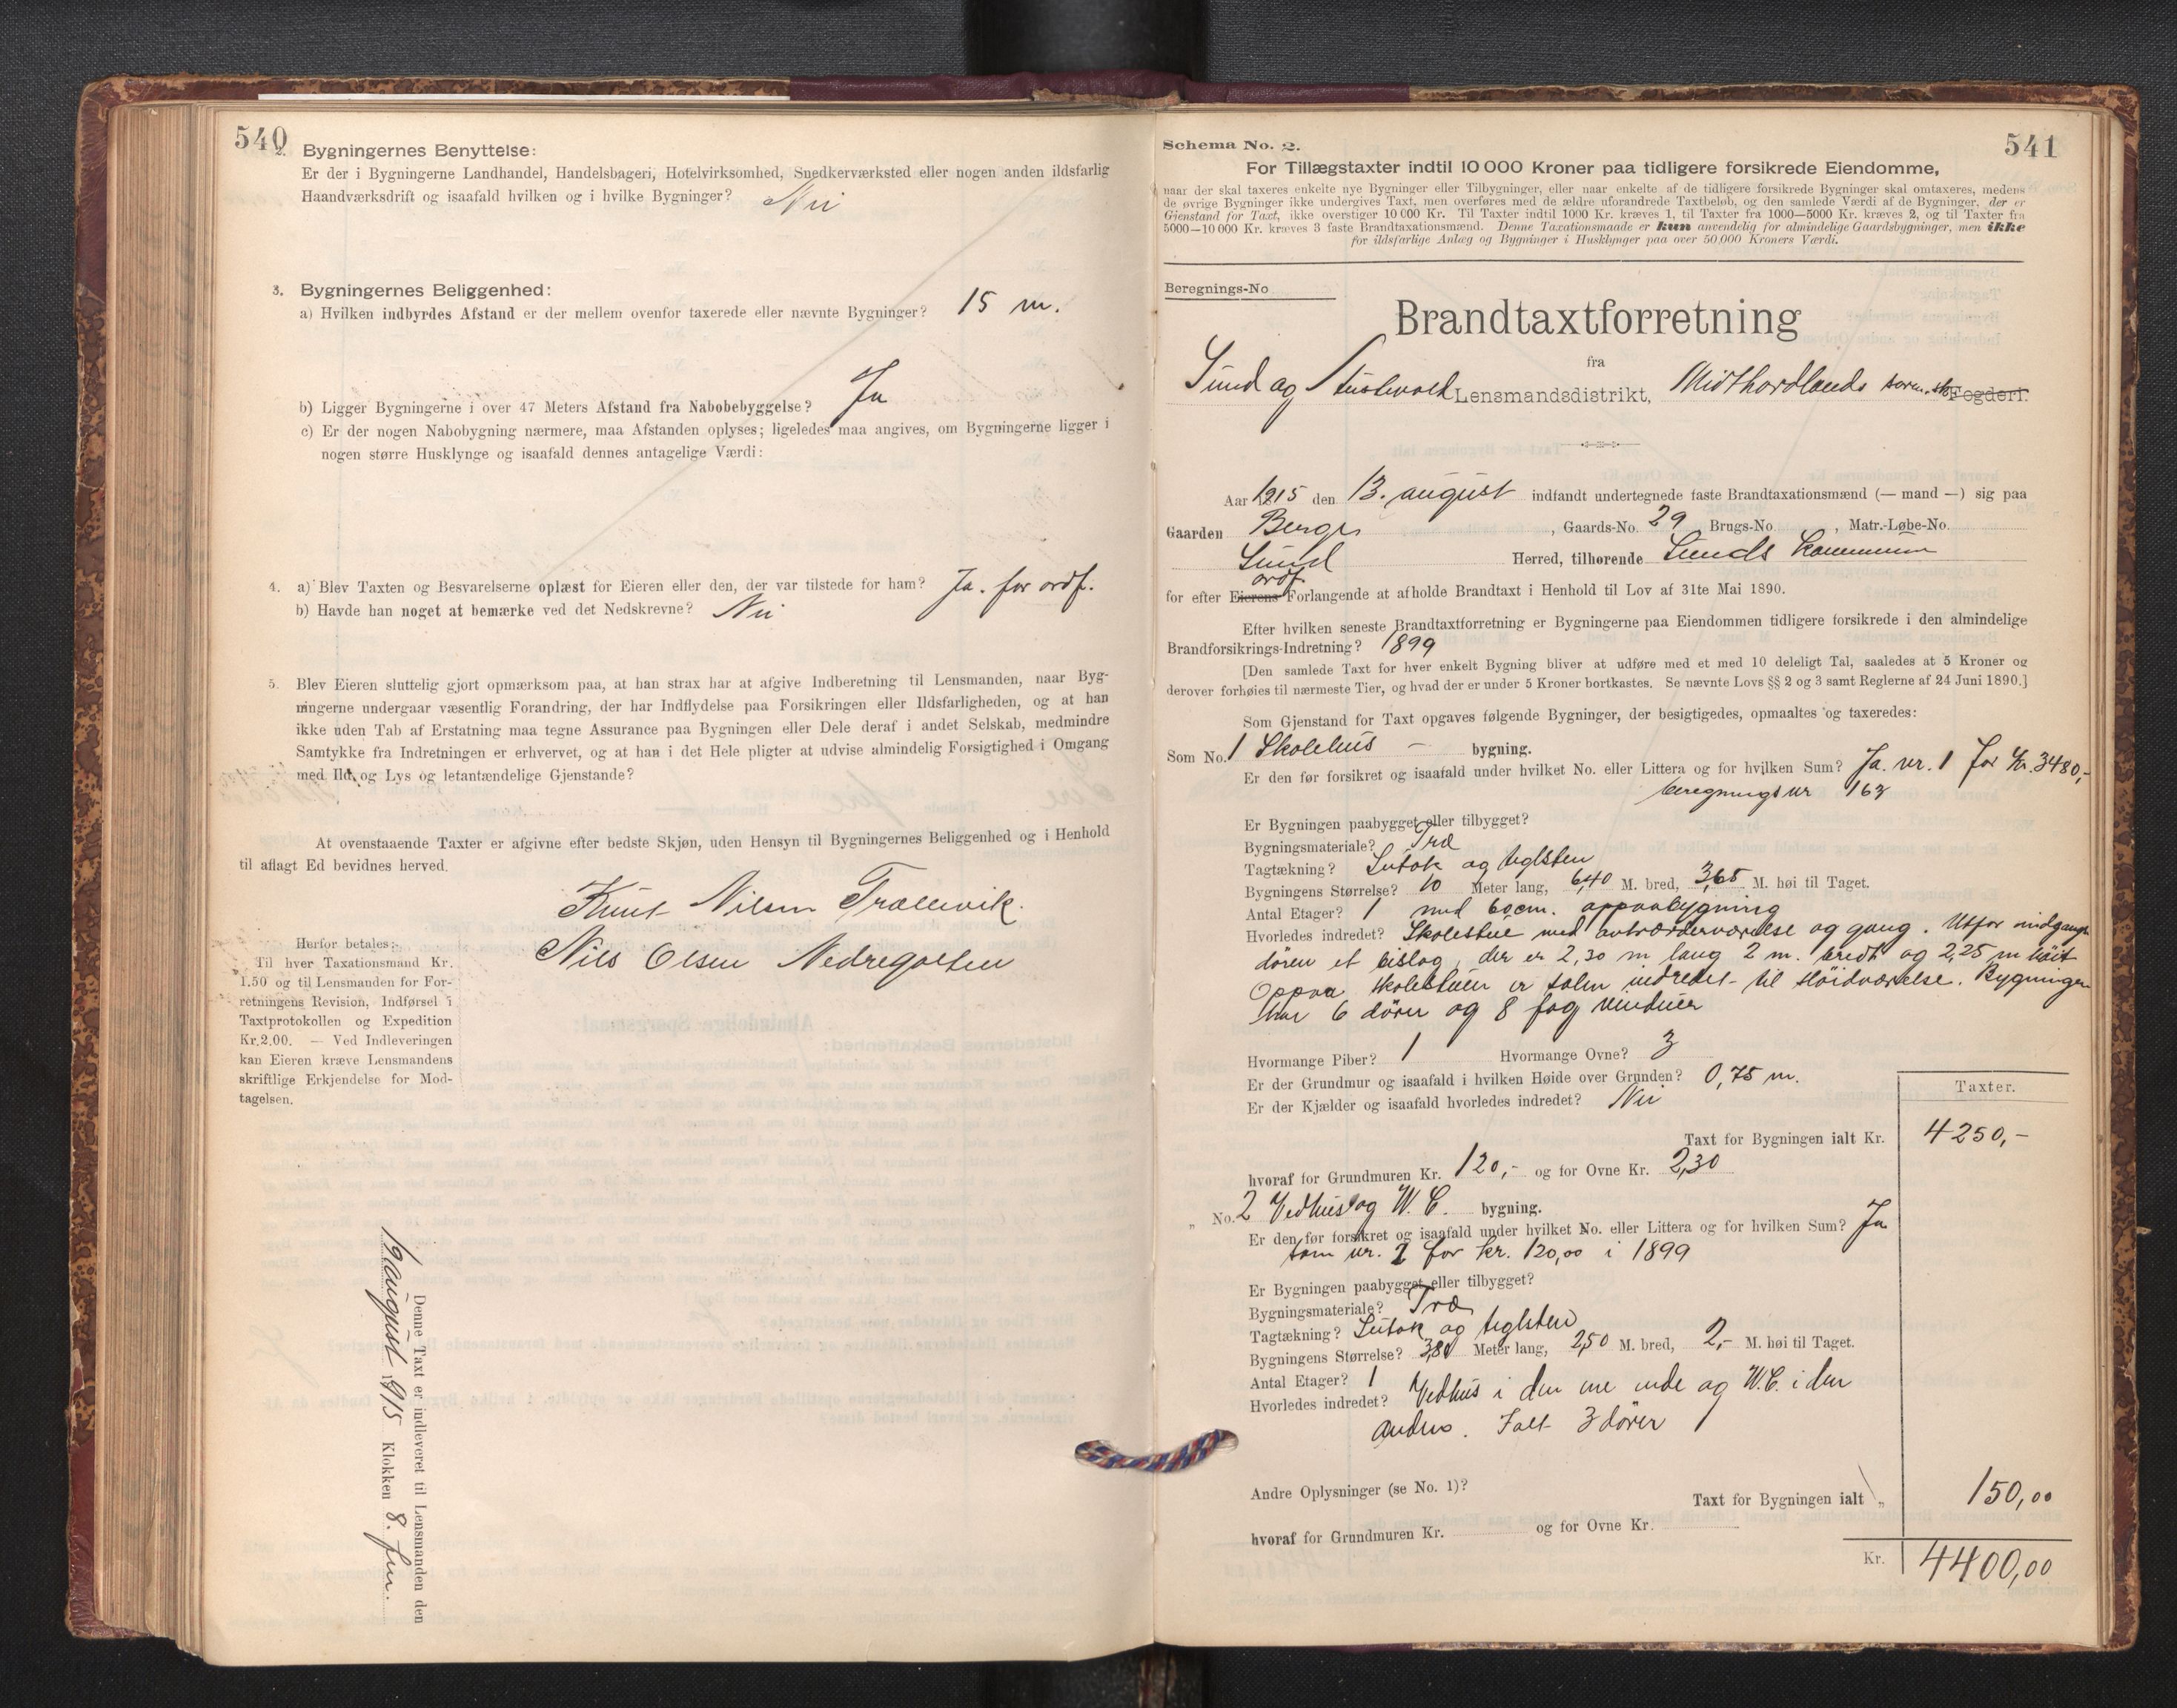 540
2. Bygningernes Benyttelse:
Er der i Bygningerne Landhandel, Handelsbageri, Hotelvirksomhed, Snedkerværksted eller nogen anden ildsfarlig
Haandværksdrift og isaafald hvilken og i hvilke Bygninger? Nei
3. Bygningernes Beliggenhed:
a) Hvilken indbyrdes Afstand er der mellem ovenfor taxerede eller nævnte Bygninger? 15 m.
b) Ligger Bygningerne i over 47 Meters Afstand fra Nabobebyggelse? Ja
c) Er der nogen Nabobygning nærmere, maa Afstanden oplyses; ligeledes maa angives, om Bygningerne ligger i
nogen større Husklynge og isaafald dennes antagelige Værdi:
4. a) Blev Taxten og Besvarelserne oplæst for Eieren eller den, der var tilstede for ham? Ja. for ordf.
b) Havde han noget at bemærke ved det Nedskrevne? Nei
5. Blev Eieren sluttelig gjort opmærksom paa, at han strax har at afgive Indberetning til Lensmanden, naar Byg-
ningerne undergaar væsentlig Forandring, der har Indflydelse paa Forsikringen eller Ildsfarligheden, og at han
ikke uden Tab af Erstatning maa tegne Assurance paa Bygningen eller Dele deraf i andet Selskab, medmindre
Samtykke fra Indretningen er erhvervet, og at han i det Hele pligter at udvise almindelig Forsigtighed i Omgang
med Ild og Lys og letantændelige Gjenstande?
At ovenstaaende Taxter er afgivne efter bedste Skjøn, uden Hensyn til Bygningernes Beliggenhed og i Henhold
til aflagt Ed bevidnes herved.
Knut Nilsen Trællevik.
Nils Olsen Nedregolten
Herfor betales:
Til hver Taxationsmand Kr.
1.50 og til Lensmanden for For-
retningens Revision, Indførsel i
Taxtprotokollen og Expedition
Kr.2.00. — Ved Indleveringen
kan Eieren kræve Lensmandens
skriftlige Erkjendelse for Mod-
tagelsen.
Denne Taxt er indleveret til Lensmanden den
19 august 1915 Klokken 8. fm.
541
Schema No. 2.
For Tillægstaxter indtil 10 000 Kroner paa tidligere forsikrede Eiendomme,
naar der skal taxeres enkelte nye Bygninger eller Tilbygninger, eller naar enkelte af de tidligere forsikrede Bygninger skal omtaxeres, medens
de øvrige Bygninger ikke undergives Taxt, men overføres med de ældre uforandrede Taxtbeløb, og den samlede Værdi af de Bygninger, der er
Gienstand for Taxt, ikke overstiger 10 000 Kr. Til Taxter indtil 1000 Kr. kræves 1, til Taxter fra 1000—5000 Kr. kræves 2, og til Taxter fra
5000—10 000 Kr. kræves 3 faste Brandtaxationsmænd. Denne Taxationsmaade er kun anvendelig for almindelige Gaardsbygninger, men ikke
for ildsfarlige Anlæg og Bygninger i Husklynger paa over 50,000 Kroners Værdi.
Beregnings-No
Brandtaxtforretning
fra
Sund og Austevold Lensmandsdistrikt, Midthordlands soren.sk. Fogderi.
Aar 1915 den 13. august indfandt undertegnede faste Brandtaxationsmænd (— mand —) sig paa
Gaarden Berge, Gaards-No. 29 Brugs-No. , Matr.-Løbe-No.
Sund Herred, tilhørende Sunds kommune
ordf.
for efter Eierens Forlangende at afholde Brandtaxt i Henhold til Lov af 31te Mai 1890.
Efter hvilken seneste Brandtaxtforretning er Bygningerne paa Eiendommen tidligere forsikrede i den almindelige
Brandforsikrings-Indretning? 1899
[Den samlede Taxt for hver enkelt Bygning bliver at udføre med et med 10 deleligt Tal, saaledes at 5 Kroner og
derover forhøies til nærmeste Tier, og hvad der er under 5 Kroner bortkastes. Se nævnte Lovs §§ 2 og 3 samt Reglerne af 24 Juni 1890.]
Som Gjenstand for Taxt opgaves følgende Bygninger, der besigtigedes, opmaaltes og taxeredes:
Som No. 1 Skolehus — bygning.
Er den før forsikret og isaafald under hvilket No. eller Littera og for hvilken Sum? Ja. nr. 1 for Kr. 3480,-
beregnings nr 163
Er Bygningen paabygget eller tilbygget?
Bygningsmateriale? Træ
Tagtækning? Sutak og teglsten
Bygningens Størrelse? 10 Meter lang, 6,40 M. bred, 3,65 M. høi til Taget.
Antal Etager? 1 med 60 cm. oppaabygning
Hvorledes indredet? Skolestue med avtrædeværelse og gang. Utfor indgangs
døren et bislag, der er 2,30 m lang 2 m. bredt og 2,25 m høit
Oppaa skolestuen er salen indredet til sløidværelse. Bygningen
har 6 dører og 8 fag vinduer
Hvormange Piber? 1 Hvormange Ovne? 3
Er der Grundmur og isaafald i hvilken Høide over Grunden? 0,75 m.
Er der Kjælder og isaafald hvorledes indredet? Nei
Taxter.
Taxt for Bygningen ialt Kr. 4250,-
hvoraf for Grundmuren Kr. 120,- og for Ovne Kr. 230
„ No. 2 Vedhus og W. C. bygning.
Er den før forsikret og isaafald under hvilket No. eller Littera og for hvilken Sum? Ja
som nr. 2 for kr. 120,00 i 1899
Er Bygningen paabygget eller tilbygget?
Bygningsmateriale? Træ
Tagtækning? Sutak og teglsten
Bygningens Størrelse? 3,80 Meter lang, 2,50 M. bred, 2,- M. høi til Taget.
Antal Etager? 1
Hvorledes indredet? Vedhus i den ene ende og W.C. i den
anden. Ialt 3 dører
Andre Oplysninger (se No. 1)?
Taxt for Bygningen ialt „ 150,00
hvoraf for Grundmuren Kr. og for Ovne Kr.
Kr. 4400,00